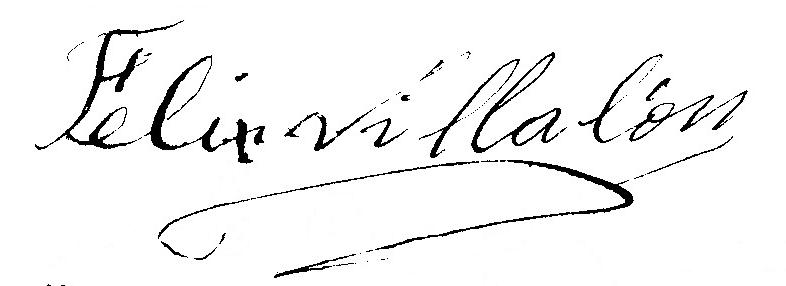 Felix villalón